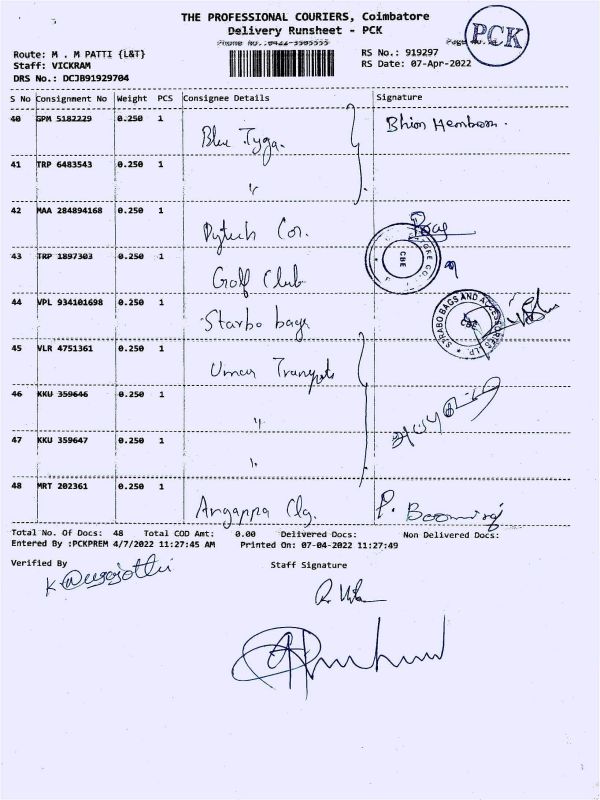 THE PROFESSIONAL COURIERS, Coimbatore
Delivery Runsheet - PCK
PCK
Route: M . M PATTI {L&T}
RS No.: 919297
Staff: VICKRAM
RS Date: 07-Apr-2022
DRS No.: DCJB91929704
S No Consignment No Weight PCS Consignee Details Signature
40 GPM 5182229 0.250 1 Blue Tyga.
41 TRP 6483543 0.250 1 "
42 MAA 284894168 0.250 1
43 TRP 1897303 0.250 1 Golf Club
CBE
44 VPL 934101698 0.250 1 Starbo bags
STRABO BAGS AND ACCESSORIES LLP
CBE
45 VLR 4751361 0.250 1
46 KKU 359646 0.250 1 "
47 KKU 359647 0.250 1 "
48 MRT 202361 0.250 1 Angappa Clg. P. Boomiraj
Total No. Of Docs: 48 Total COD Amt: 0.00 Delivered Docs: Non Delivered Docs:
Entered By :PCKPREM 4/7/2022 11:27:45 AM Printed On: 07-04-2022 11:27:49
Verified By Staff Signature